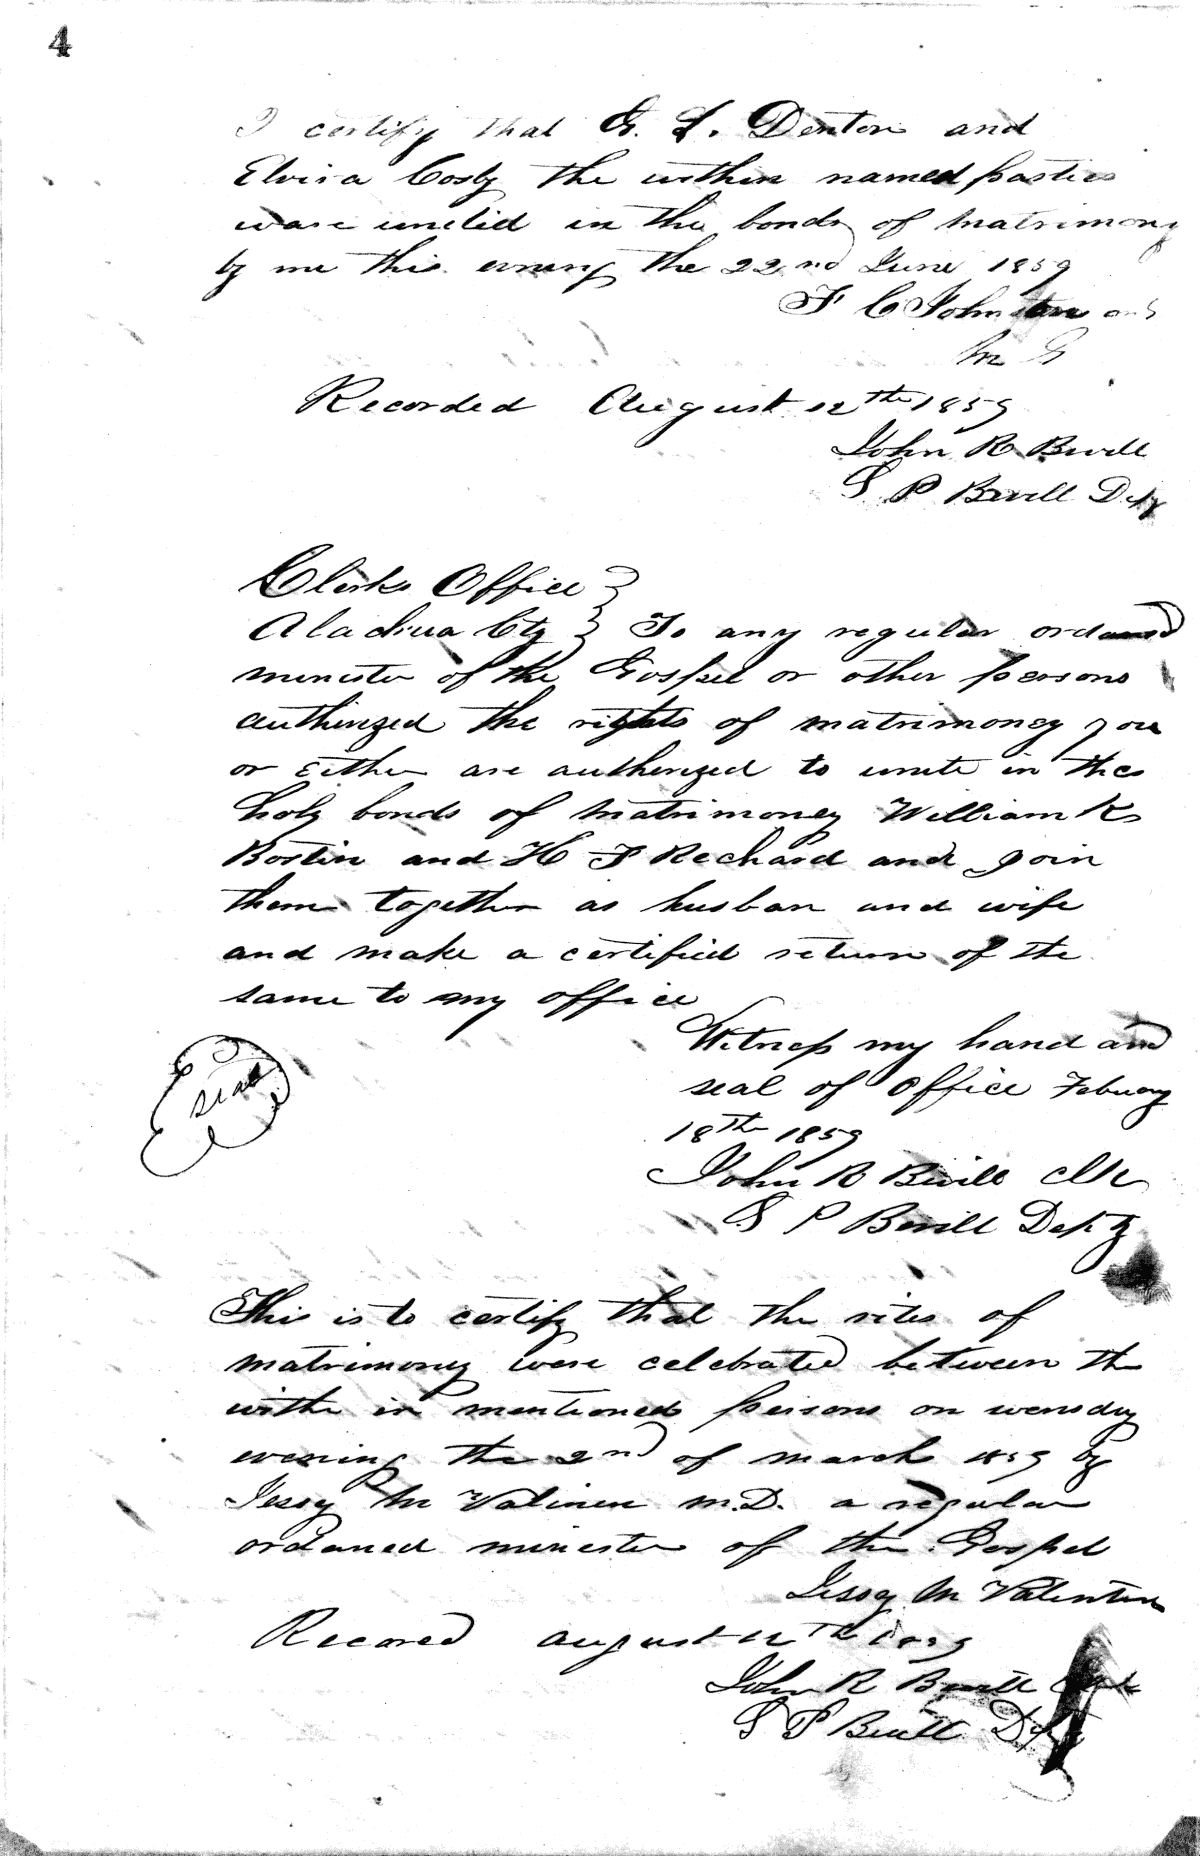 4
I certify that G. L. Denton and
Elvira Cosby the within named parties
ware unitid in the bonds of matrimony
by me this evning the 22nd June 1859
F C Johnston
M G
Recorded August 12th 1859
John R Bevill
S P Bevill Dety
Clerks Office
Alachua Cty To any regular ordained
minister of the Gospel or other persons
authirized the rights of matrimoney you
or Either are authorized to unite in the
holy bonds of matrimoney William R
Bostin and H F Richard and join
them together as husban and wife
and make a certified return of the
same to my office
Witness my hand and
seal of office Febuary
18th 1859
seal
John R Bevill Clk
S P Bevill Depty
This is to certify that the rites of
matrimoney were celebrated between th
with in mentioned persons on wensday
evening the 2nd of march 1859 by
Jessy M Valinen M.D. a regular
ordaned minister of the Gospel
Jessy M Valentine
Recored august 12th 1859
John R Bevill Clk
S P Bevill Dpty